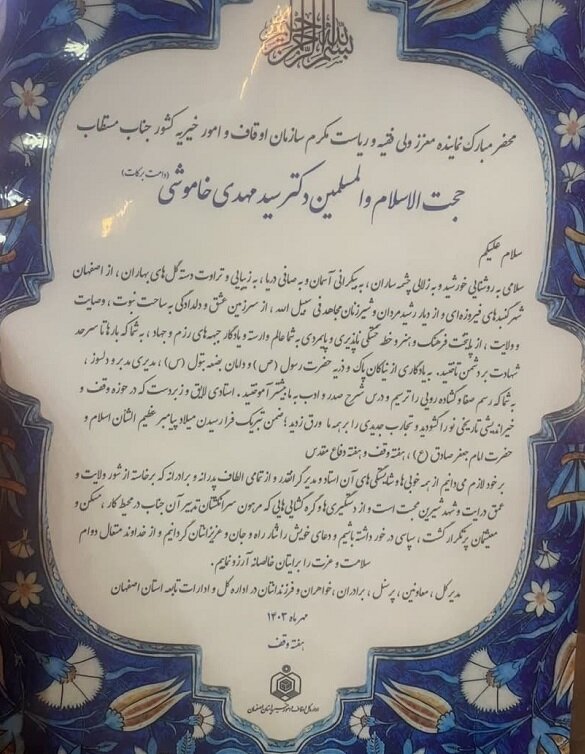 بسم الله الرحمن الرحیم
محضر مبارک نماینده معزز ولی فقیه و ریاست مکرم سازمان اوقاف و امور خیریه کشور جناب مستطاب
حجت الاسلام والمسلمین دکتر سید مهدی خاموشی (دامت برکاته)
سلام علیکم
سلامی به روشنایی خورشید و به زلالی چشمه ساران ، به بیکرانی آسمان و به صافی دریا ، به زیبایی و تراوت دسته گل های بهاران ، از اصفهان
شهر گنبدهای فیروزه ای و از دیار رشید مردان و شیر زنان مجاهد فی سبیل الله ، از سرزمین عشق و دلدادگی به ساحت نبوت ، وصایت
و ولایت ، از پایتخت فرهنگ و هنر و خطه خستگی ناپذیری و پایمردی به شما عالم وارسته و یادگار جبهه های رزم و جهاد ، به شما که بارها تا سرحد
شهادت بر دشمن تاختید . به یادگاری از نیاکان پاک و ذریه حضرت رسول (ص) و دامان بضعه بتول (س) ، مدیری مدبر و دلسوز ،
به شما که رسم صفا و گشاده رویی را ترسیم و درس شرح صدر و ادب به ما بیشتر آموختید . استادی لایق و زبردست که در حوزه وقف و
خیراندیشی تاریخی نو را گشودید و تجارب جدیدی را بر همه ما ورق زدید ؛ ضمن تبریک فرا رسیدن میلاد پیامبر عظیم الشان اسلام و
حضرت امام جعفر صادق (ع) ، هفته وقف و هفته دفاع مقدس
بر خود لازم می دانیم از همه خوبی ها و شایستگی های آن استاد و مدیر گرانقدر و از تمامی الطاف پدرانه و برادرانه که برخاسته از شور ولایت و
عمق درایت و شهد شیرین محبت است و از دستگیری ها و گره گشایی هایی که مرهون سرانگشتان تدبیر آن جناب در محیط کار ، مسکن و
معیشتمان پرتکرار گشت ، سپاسی در خور داشته باشیم و دعای خویش را نثار راه و جان و عزیزانتان گردانیم و از خداوند متعال دوام
سلامت و عزت را برایتان خالصانه آرزو نماییم .
مدیر کل ، معاونین ، پرسنل ، برادران ، خواهران و فرزندانتان در اداره کل و ادارات تابعه استان اصفهان
مهر ماه ۱۴۰۳
هفته وقف
اداره کل اوقاف و امور خیریه استان اصفهان